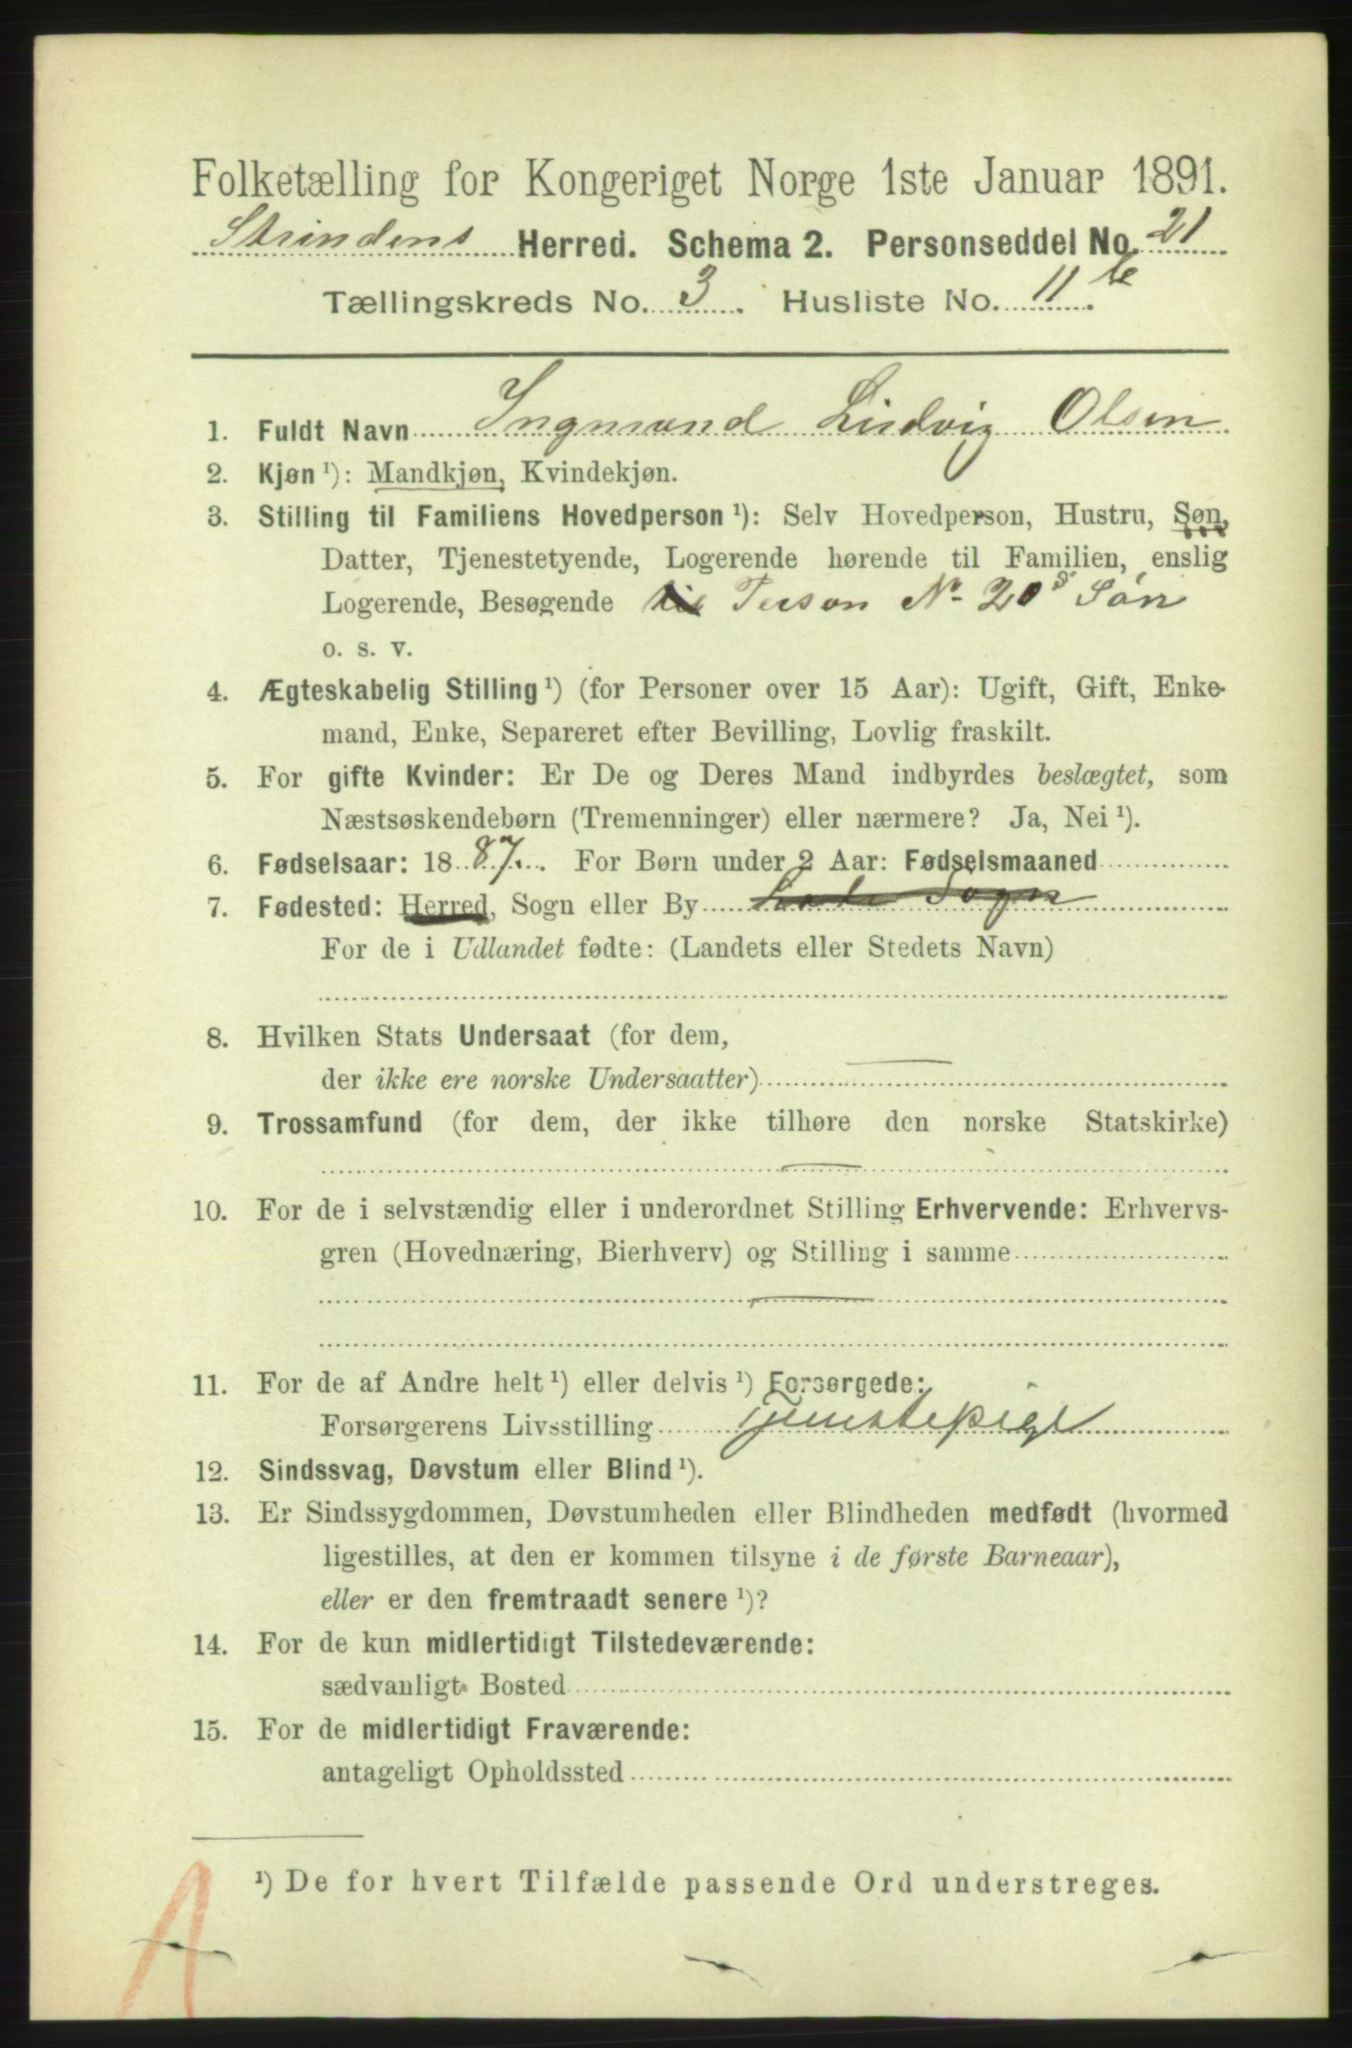 Folketælling for Kongeriget Norge 1ste Januar 1891.
Strindens Herred. Schema 2. Personseddel No. 21
Tællingskreds No. 3. Husliste No. 11.b
1. Fuldt Navn Ingmand Ludvig Olsen
2. Kjøn ¹): Mandkjøn, Kvindekjøn.
3. Stilling til Familiens Hovedperson ¹): Selv Hovedperson, Hustru, Søn,
Datter, Tjenestetyende, Logerende hørende til Familien, enslig
Logerende, Besøgende Person No 20s Søn
o. s. v.
4. Ægteskabelig Stilling ¹) (for Personer over 15 Aar): Ugift, Gift, Enke-
mand, Enke, Separeret efter Bevilling, Lovlig fraskilt.
5. For gifte Kvinder: Er De og Deres Mand indbyrdes beslægtet, som
Næstsøskendebørn (Tremenninger) eller nærmere? Ja, Nei ¹).
6. Fødselsaar: 1887. For Børn under 2 Aar: Fødselsmaaned
7. Fødested: Herred, Sogn eller By Lade Sogn
For de i Udlandet fødte: (Landets eller Stedets Navn)
8. Hvilken Stats Undersaat (for dem,
der ikke ere norske Undersaatter)
9. Trossamfund (for dem, der ikke tilhøre den norske Statskirke)
10. For de i selvstændig eller i underordnet Stilling Erhvervende: Erhvervs-
gren (Hovednæring, Bierhverv) og Stilling i samme
11. For de af Andre helt ¹) eller delvis ¹) Forsørgede:
Forsørgerens Livsstilling Tjenestepige
12. Sindssvag, Døvstum eller Blind ¹).
13. Er Sindssygdommen, Døvstumheden eller Blindheden medfødt (hvormed
ligestilles, at den er kommen tilsyne i de første Barneaar),
eller er den fremtraadt senere ¹)?
14. For de kun midlertidigt Tilstedeværende:
sædvanligt Bosted
15. For de midlertidigt Fraværende:
antageligt Opholdssted
¹) De for hvert Tilfælde passende Ord understreges.
A